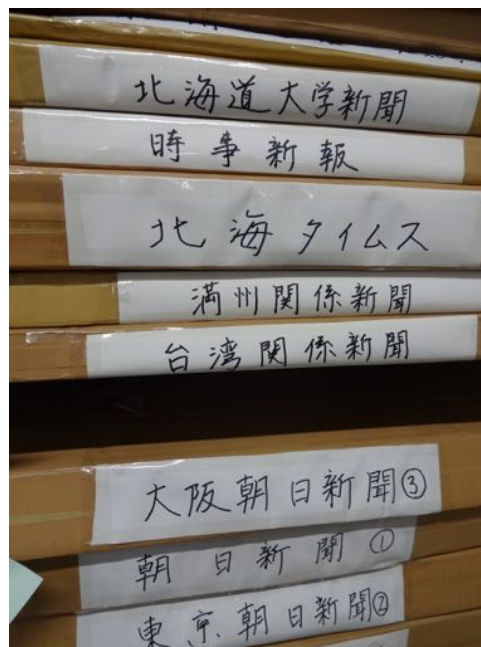 北海道大学新聞
時事新報
北海タイムス
満州関係新聞
台湾関係新聞
大阪朝日新聞③
朝日新聞①
東京朝日新聞②